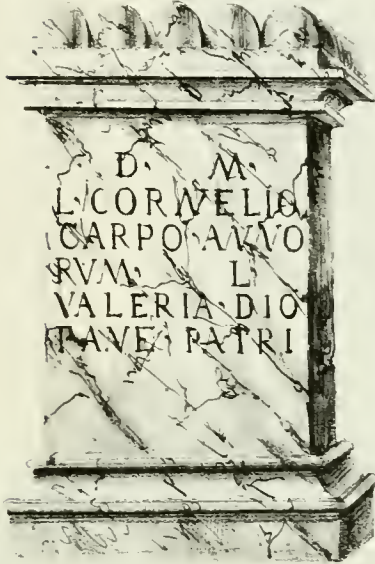 D· M·
L·CORNELIO
CARPO·ANNO
RVM· L·
VALERIA·DIO
PATRI